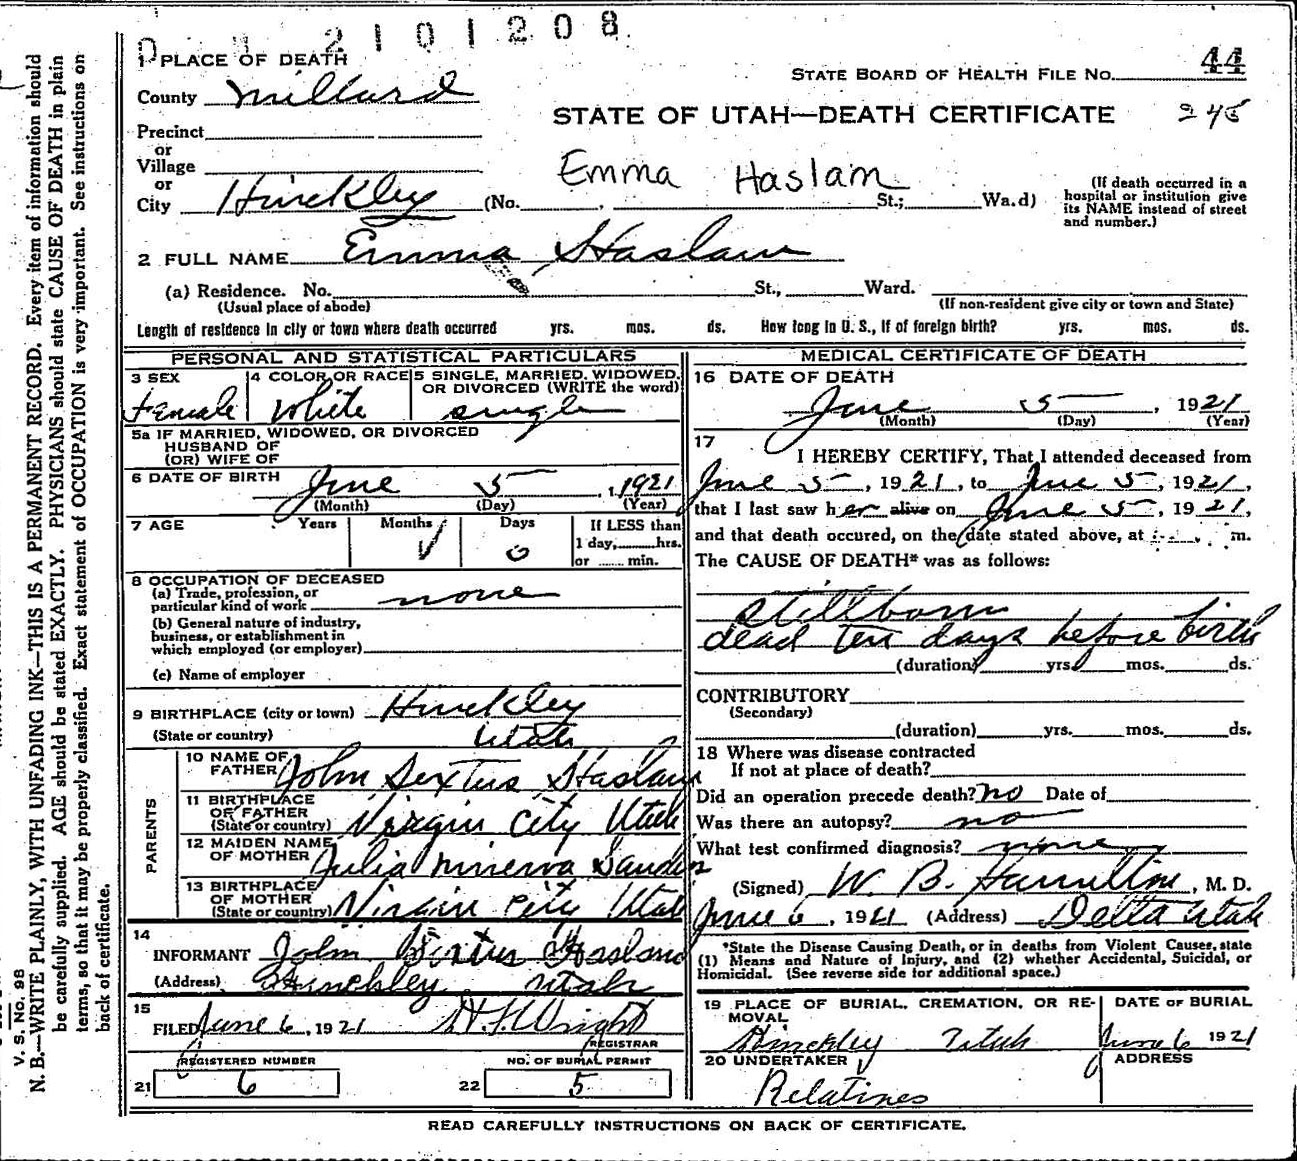 2101208
1 PLACE OF DEATH
STATE BOARD OF HEALTH FILE No. 44
County Millard
STATE OF UTAH—DEATH CERTIFICATE 245
Precinct
or
Village
Emma Haslam
or
City Hinckley (No. , St.; Wa.d)
(If death occurred in a
hospital or institution give
its NAME instead of street
and number.)
2 FULL NAME Emma Haslam
(a) Residence. No. St., Ward.
(Usual place of abode) (If non-resident give city or town and State)
Length of residence in city or town where death occurred yrs. mos. ds. How long in U. S., if of foreign birth? yrs. mos. ds.
PERSONAL AND STATISTICAL PARTICULARS
3 SEX
Female
4 COLOR OR RACE
White
5 SINGLE, MARRIED, WIDOWED,
OR DIVORCED (WRITE the word)
single
5a IF MARRIED, WIDOWED, OR DIVORCED
HUSBAND OF
(OR) WIFE OF
6 DATE OF BIRTH
June 5 , 1921
(Month) (Day) (Year)
7 AGE
Years Months Days
0
If LESS than
1 day, hrs.
or min.
8 OCCUPATION OF DECEASED
(a) Trade, profession, or
particular kind of work none
(b) General nature of industry,
business, or establishment in
which employed (or employer)
(c) Name of employer
9 BIRTHPLACE (city or town) Hinckley
(State or country) Utah
PARENTS
10 NAME OF
FATHER John Sextus Haslam
11 BIRTHPLACE
OF FATHER
(State or country) Virgin City Utah
12 MAIDEN NAME
OF MOTHER Julia Minerva Sanders
13 BIRTHPLACE
OF MOTHER
(State or country) Virgin City Utah
14
INFORMANT John Sextus Haslam
(Address) Hinckley Utah
15
FILED June 6, 1921 Wright
REGISTRAR
REGISTERED NUMBER
21 6
NO. OF BURIAL PERMIT
22 5
MEDICAL CERTIFICATE OF DEATH
16 DATE OF DEATH
June 5 , 1921
(Month) (Day) (Year)
17
I HEREBY CERTIFY, That I attended deceased from
June 5, 1921, to June 5, 1921,
that I last saw her alive on June 5, 1921,
and that death occured, on the date stated above, at m.
The CAUSE OF DEATH* was as follows:
Stillborn
dead ten days before birth
(duration) yrs. mos. ds.
CONTRIBUTORY
(Secondary)
(duration) yrs. mos. ds.
18 Where was disease contracted
If not at place of death?
Did an operation precede death? no Date of
Was there an autopsy? no
What test confirmed diagnosis? none
(Signed) W. B. Hamilton, M. D.
June 6, 1921 (Address) Delta Utah
*State the Disease Causing Death, or in deaths from Violent Causes, state
(1) Means and Nature of Injury, and (2) whether Accidental, Suicidal, or
Homicidal. (See reverse side for additional space.)
19 PLACE OF BURIAL, CREMATION, OR RE-
MOVAL
Hinckley Utah
DATE OF BURIAL
June 6 1921
20 UNDERTAKER
Relatives
ADDRESS
READ CAREFULLY INSTRUCTIONS ON BACK OF CERTIFICATE.
V. S. No. 98
N. B.—WRITE PLAINLY, WITH UNFADING INK—THIS IS A PERMANENT RECORD. Every item of information should
be carefully supplied. AGE should be stated EXACTLY. PHYSICIANS should state CAUSE OF DEATH in plain
terms, so that it may be properly classified. Exact statement of OCCUPATION is very important. See instructions on
back of certificate.